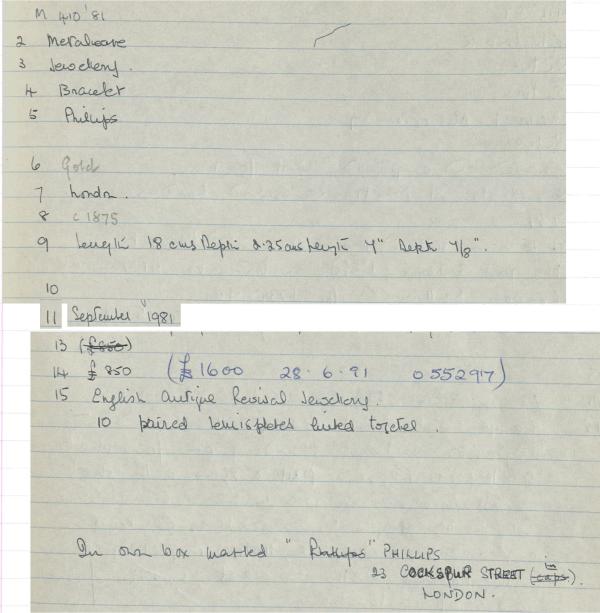 M 410 '81
2 Metalware
3 Jewellery.
4 Bracelet
5 Phillips
6 Gold
7 London.
8 c 1875
9 Length 18 cms Depth 2.25 cms Length 7" Depth 7/8".
10
11 September 1981
13 (£850)
14 £ 850 (£1600 28.6.91 055297)
15 English Antique Revival Jewellery.
10 paired hemispheres linked together.
In own box marked " Phillips" PHILLIPS
23 COCKSPUR STREET (in caps).
LONDON.